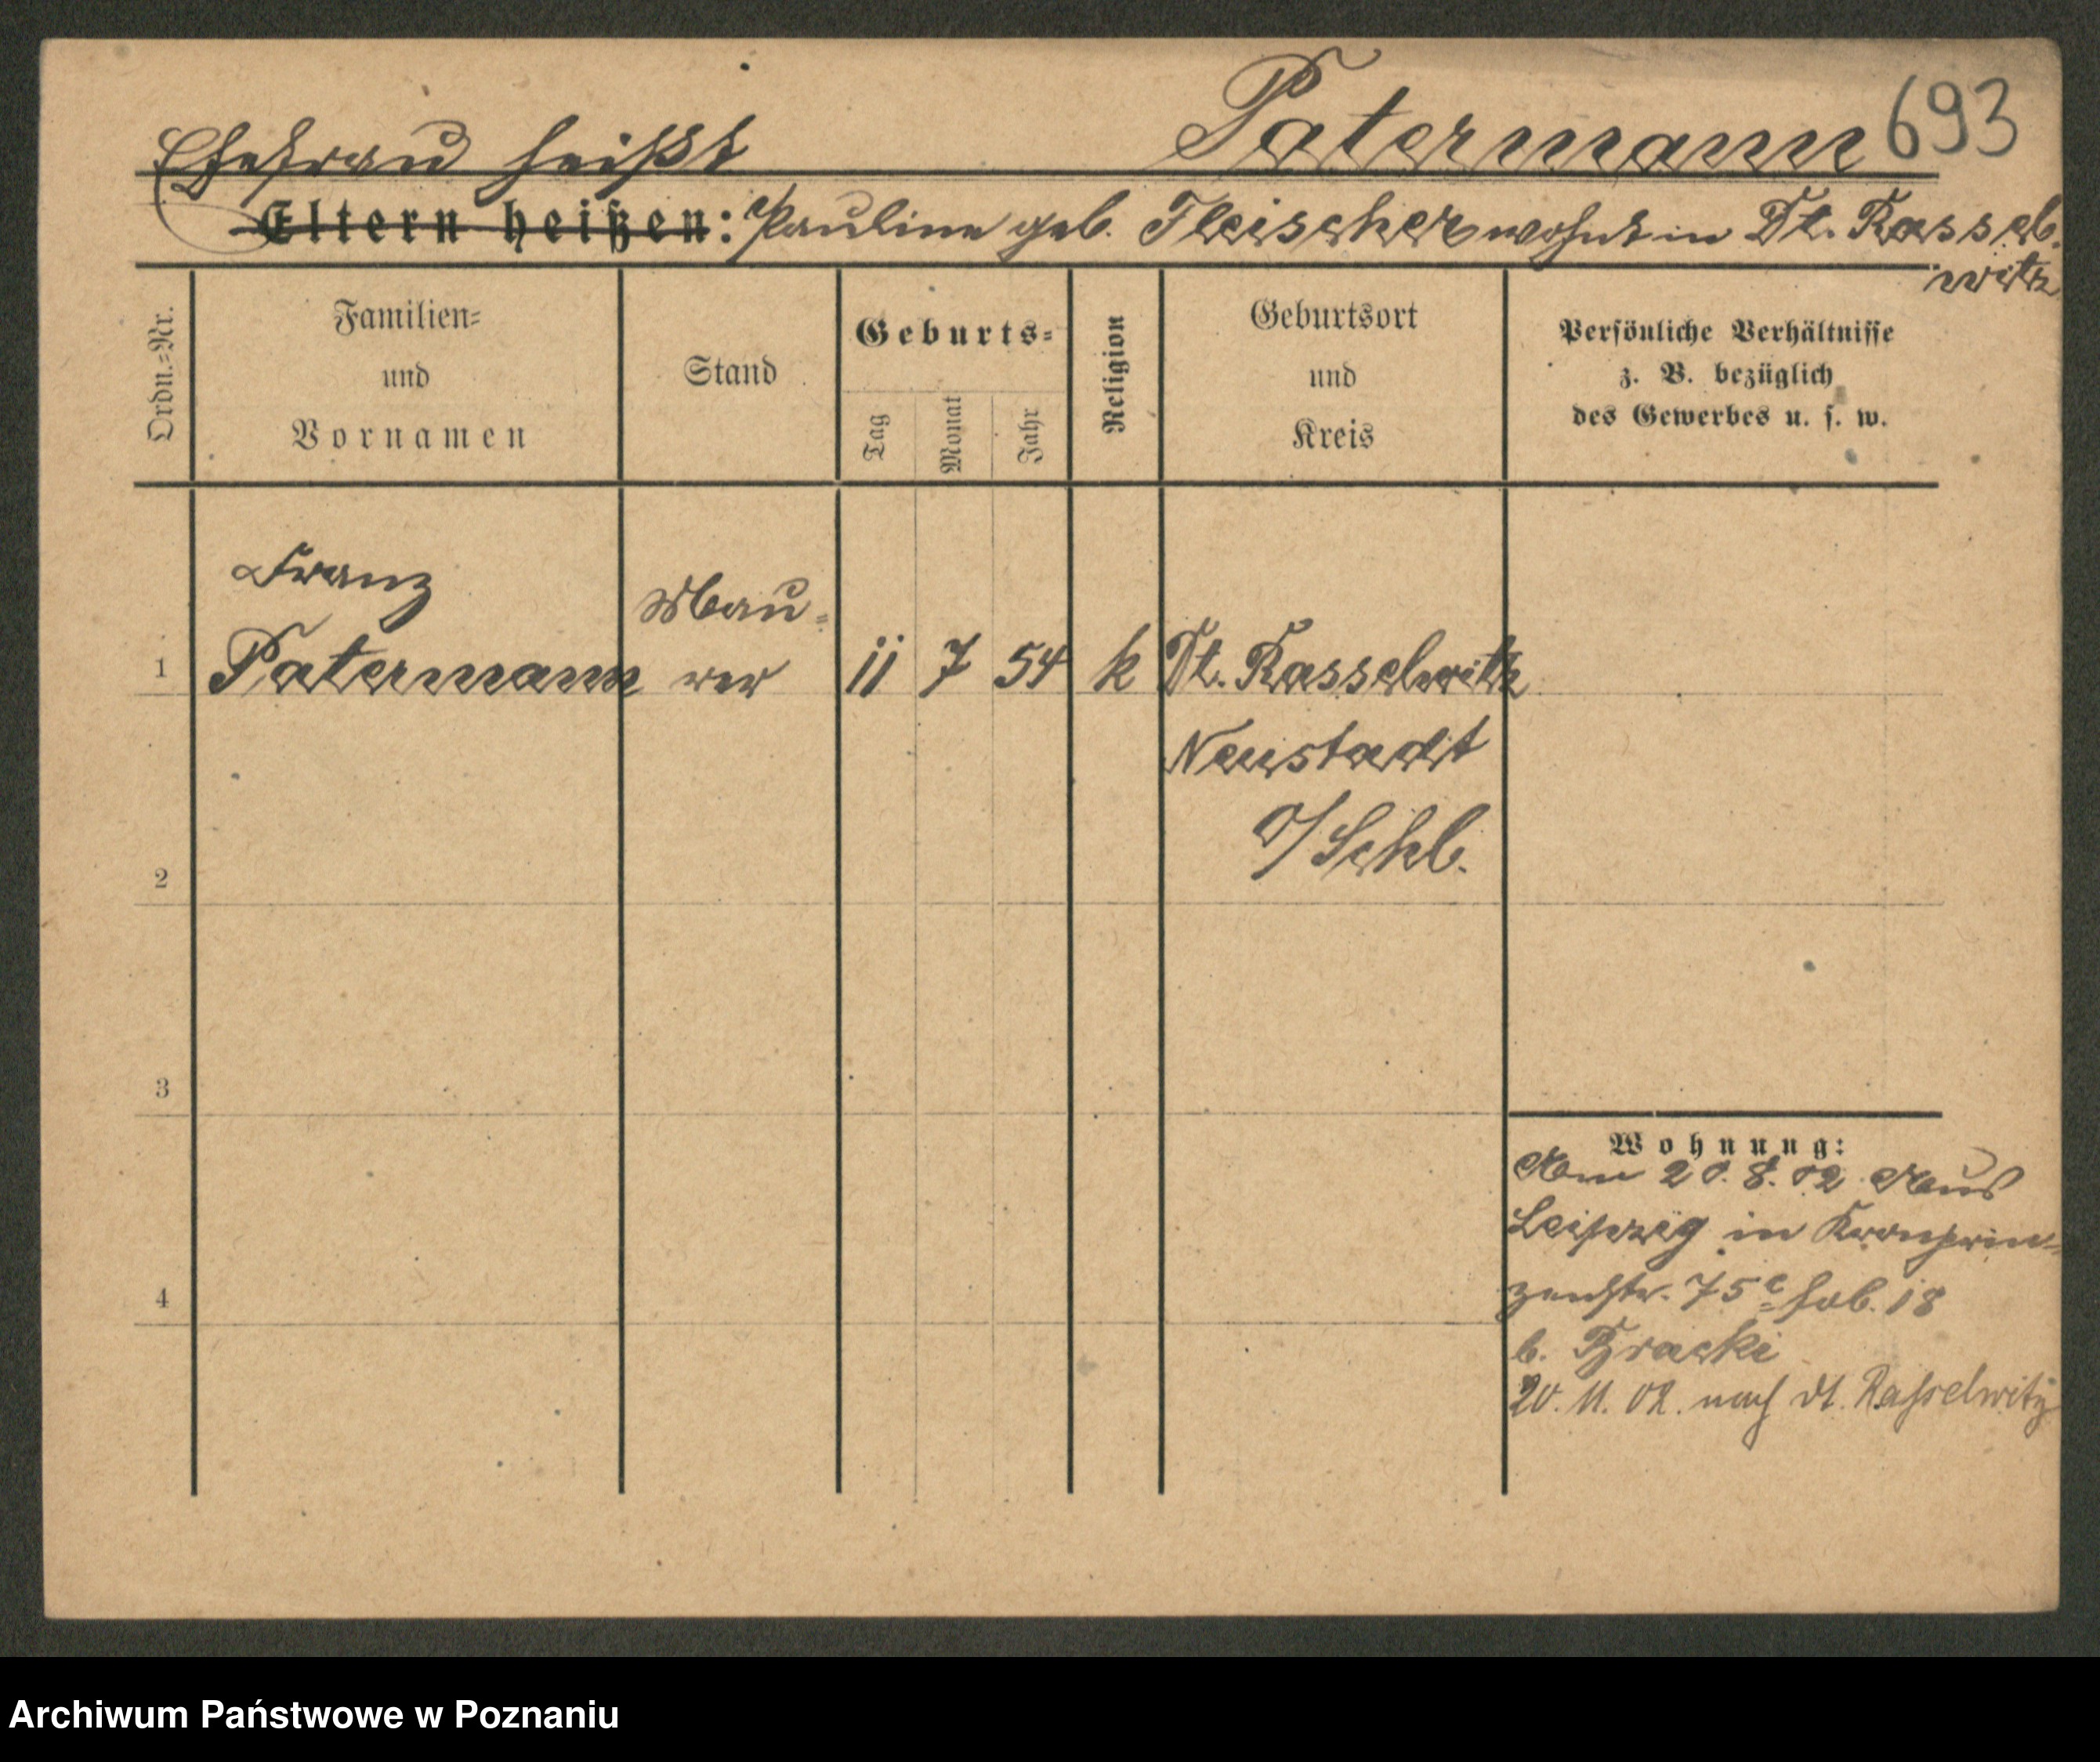 Patermann 693
Ehefrau heißt
Eltern heißen: Pauline geb. Fleischer wohnt in Dt. Rassel-
witz
Ordn.-Nr.
Familien-
und
Vornamen
Stand
Geburts-
Tag
Monat
Jahr
Religion
Geburtsort
und
Kreis
Persönliche Verhältnisse
z. B. bezüglich
des Gewerbes u. s. w.
Franz
Mau-
1 Patermann rer 11 7 54 k Dt. Rasselwitz
Neustadt
O/Schl.
2
3
Wohnung:
Am 20.8.02 Aus
Leipzig in Kronprin-
zenstr. 75 18
4
b.
20. 11. 02. nach dt. Rasselwitz
Archiwum Państwowe w Poznaniu